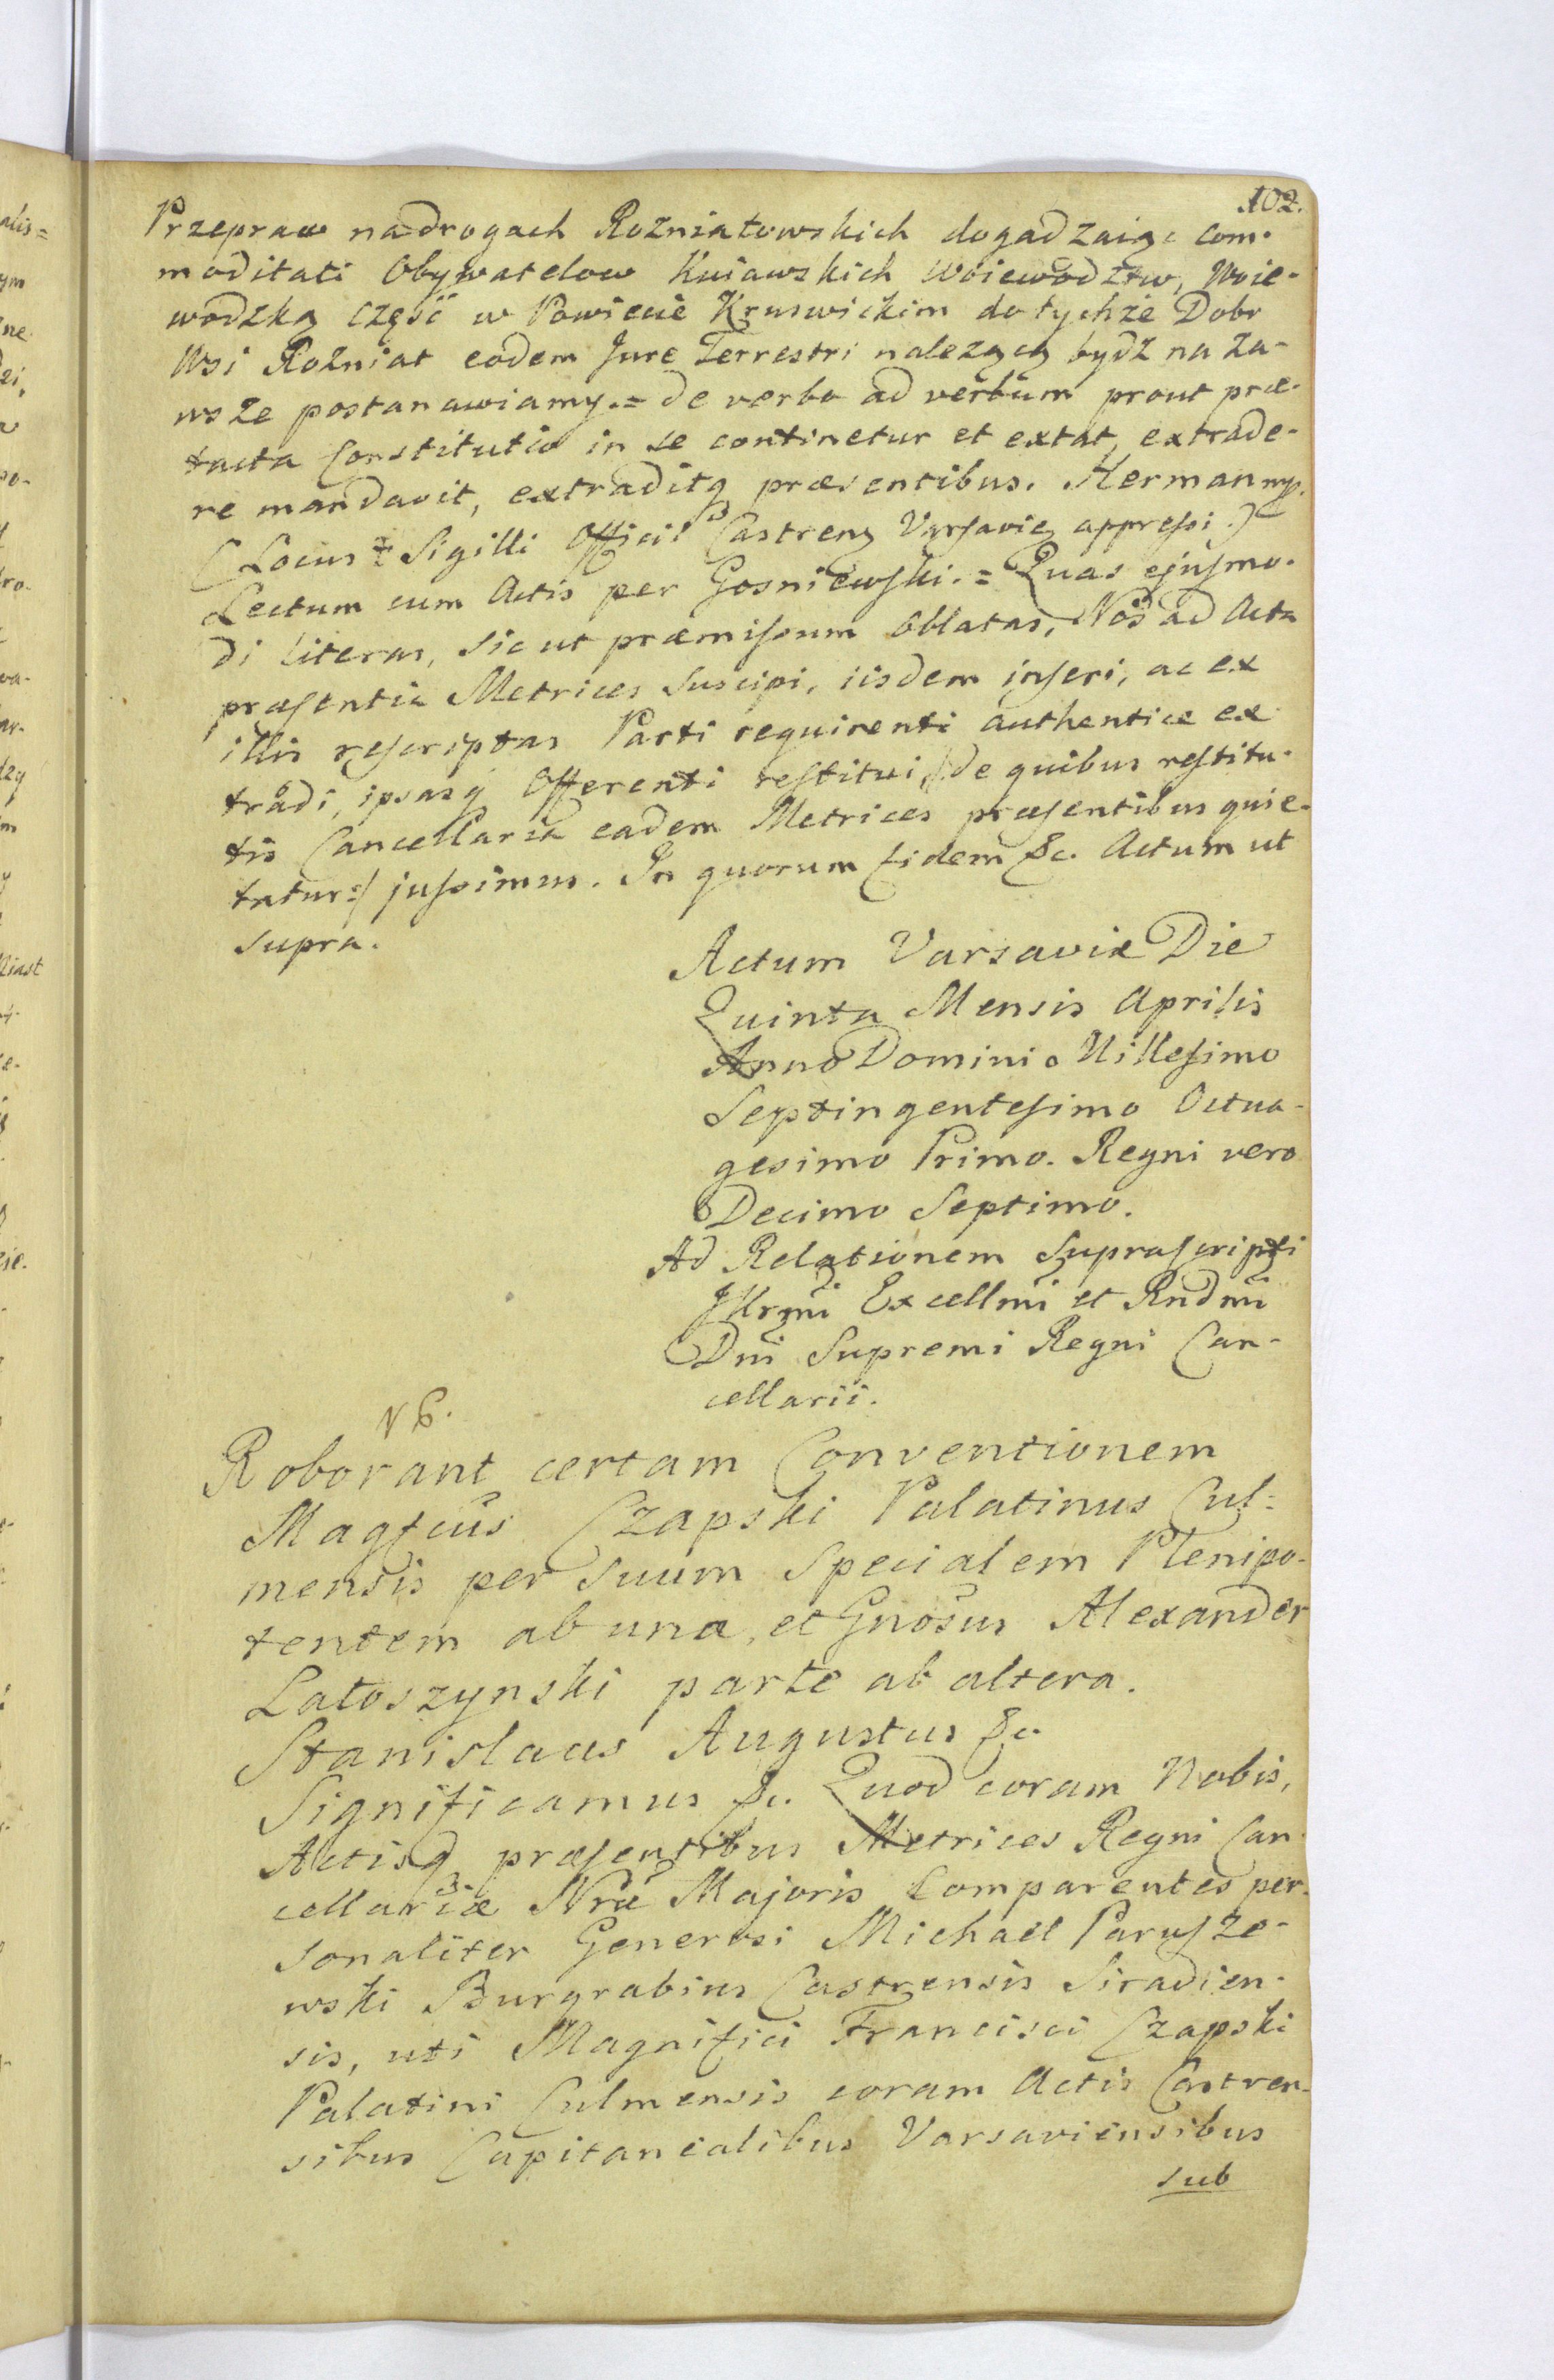 102.
Przepraw na drogach Rozniatowskich dogadzaiąc com-
moditati Obywatelow Kuiawskich Woiewodztw, Woie-
wodzką część w Powiecie Kruswickim do tychże Dobr
Wsi Rożniat eodem Jure Terrestri nalezącą bydź na za-
wsze postanawiamy.= de verbo ad verbum prout præ-
tacta Constitutio in se continetur et extat, extrade-
re mandavit, extraditq præsentibus. Hermanny.
(Locus ‡ Sigilli Officii Castreng Varsavieg appreſsi.)
Lectum cum Actis per Gosniewſki.= Quas ejuſmo-
di literas, sic ut præmiſsum Oblatas, Nos ad Acta
præſentia Metrices suscipi, iisdem inſeri, ac ex
illis reſcriptas Parti requirenti authentice ex-
tradi, ipsasq Offerenti reſtitui /:de quibus reſtitu-
tis Cancellaria eadem Metrices præſentibus quie-
tatur:/ juſsimus. In quorum fidem &c. Actum ut
supra.
Actum Varsaviæ Die
Quinta Mensis Aprilis
Anno Domini Milleſimo
Septingenteſimo Octua-
gesimo Primo. Regni vero
Decimo Septimo.
Ad Relationem Supraſcripti
Jllrmi Excellmi et Rndmi
Dni Supremi Regni Can-
cellarii.
NB.
Roborant certam Conventionem
Magfcus Czapski Palatinus Cul-
mensis per suum specialem Plenipo-
tentem ab una, et Gnosus Alexander
Latoszynski parte ab altera.
Stanislaus Augustus &c.
Significamus &c. Quod coram Nobis,
Actisq præſentibus Metrices Regni Can-
cellariæ Nræ Majoris Comparentes per-
sonaliter Generosi Michael Paruſze-
wski Burgrabius Castrensis Siradien-
sis, uti Magnifici Francisci Czapski
Palatini Culmensis coram Actis Castren-
sibus Capitanealibus Varsaviensibus
sub